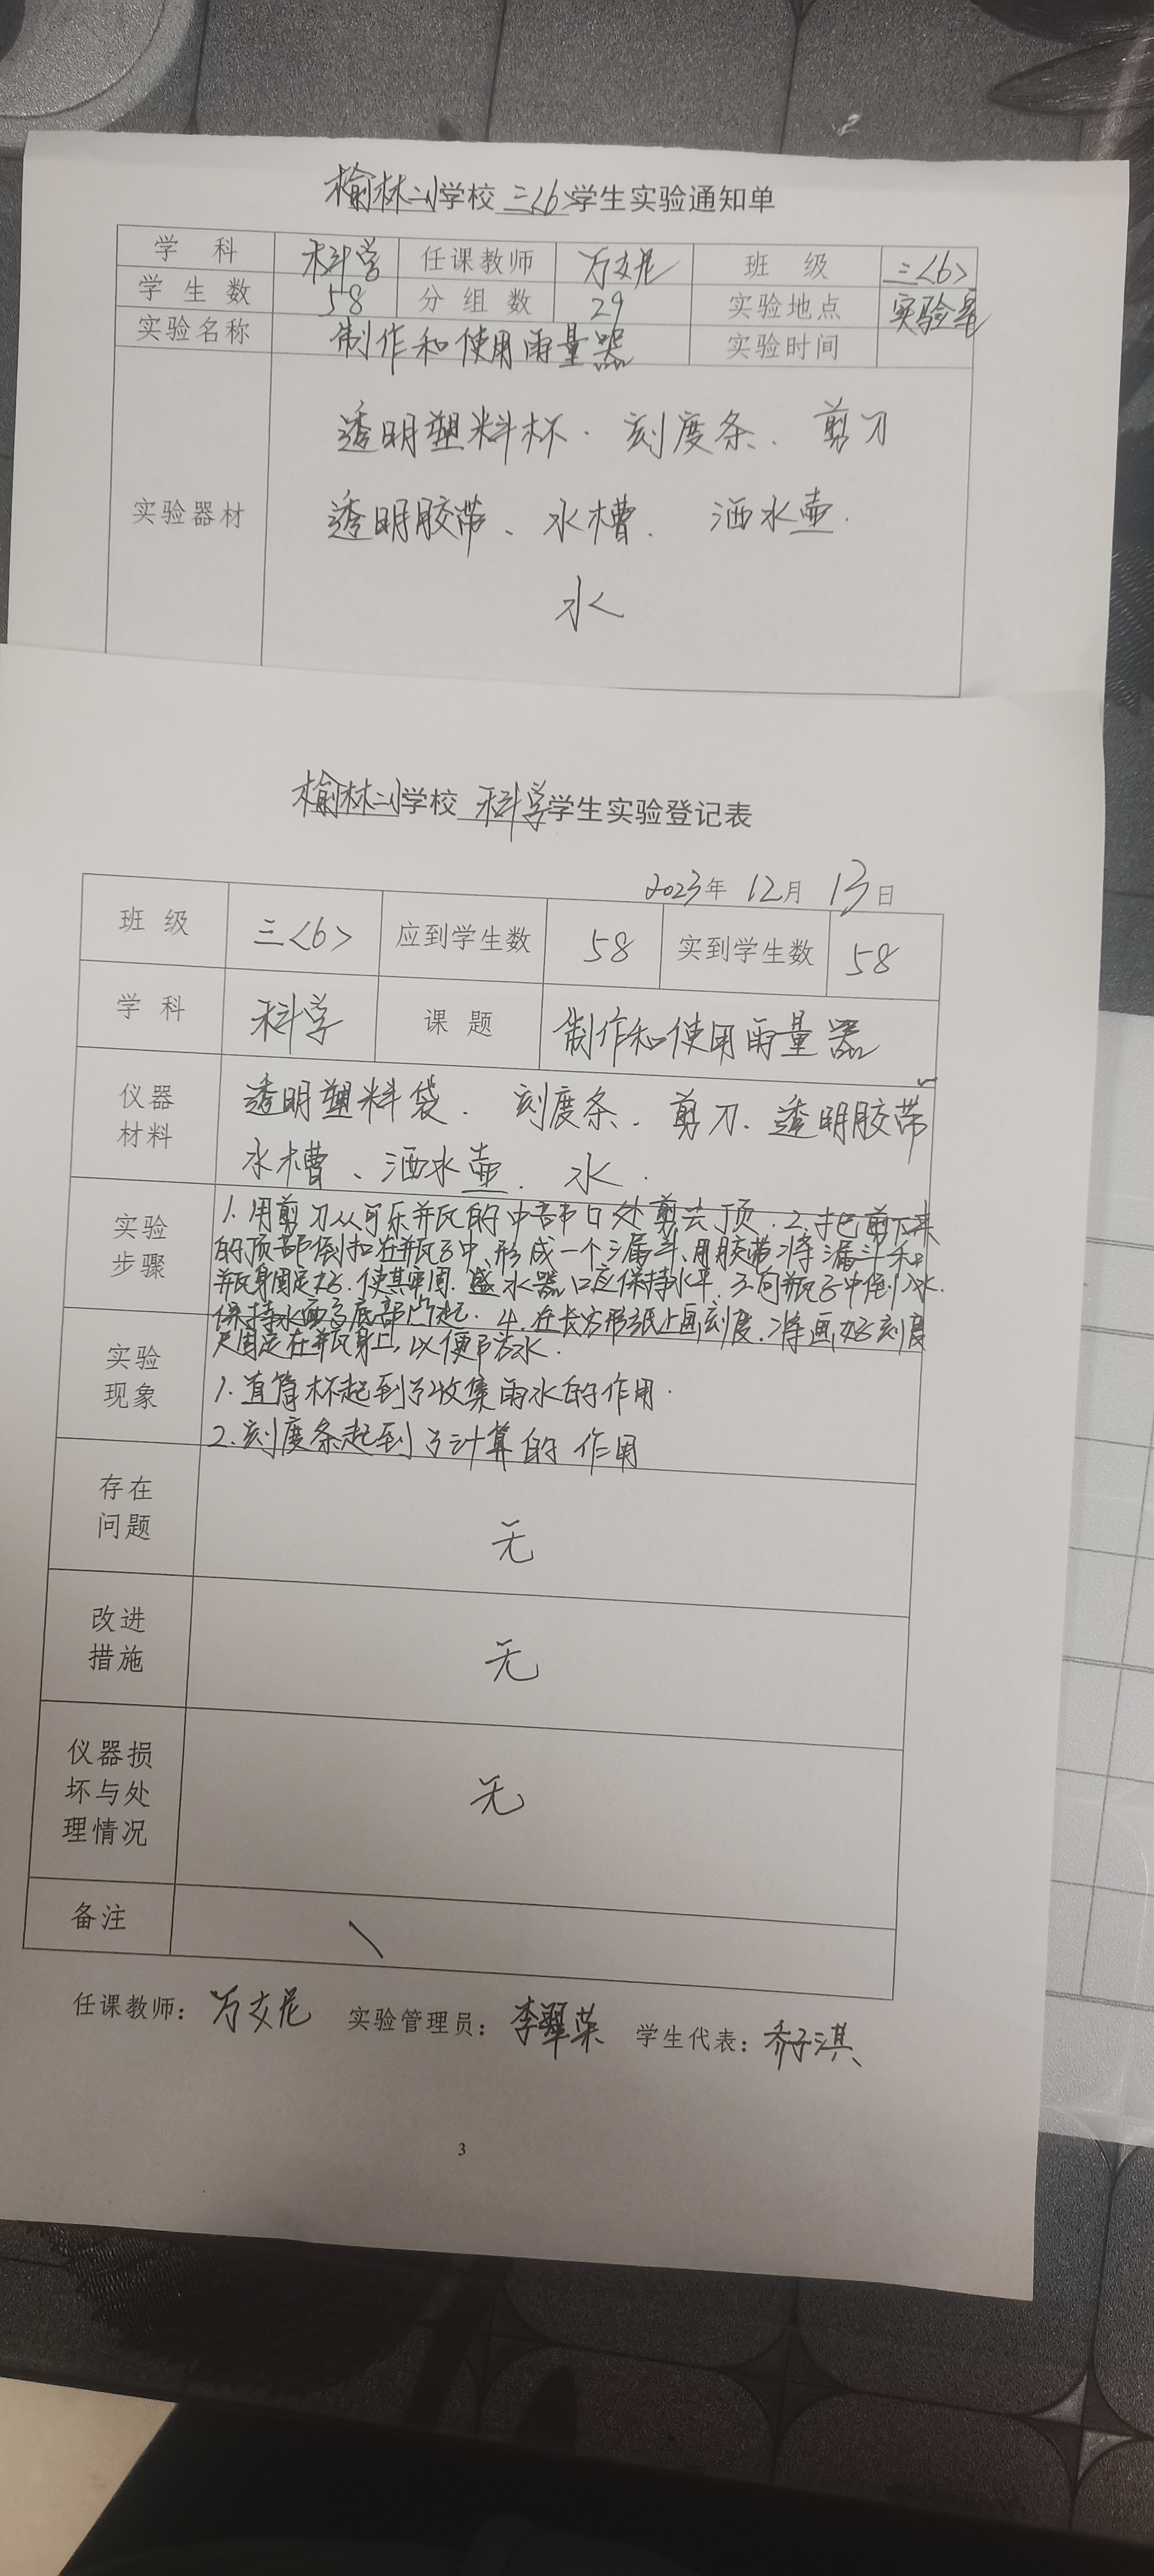 榆林二小学校 三<6> 学生实验通知单
学 科 科学 任课教师 班 级 三<6>
学 生 数 58 分 组 数 29 实验地点 实验室
实验名称 制作和使用雨量器 实验时间
实验器材
透明塑料杯. 刻度条. 剪刀
透明胶带、水槽. 洒水壶.
水
榆林二小学校 科学 学生实验登记表
2023年 12月 13日
班 级 三<6> 应到学生数 58 实到学生数 58
学 科 科学 课 题 制作和使用雨量器
仪器材料 透明塑料袋. 刻度条. 剪刀. 透明胶带
水槽、洒水壶. 水.
实验步骤 1. 用剪刀从可乐瓶的中部口处剪去顶. 2. 把剪下来
的顶部倒扣在瓶子中,形成一个漏斗、用胶带将漏斗和
瓶身固定好. 使其牢固. 盛水器口应保持水平. 3. 向瓶子中倒入水.
保持水面高底部凸起. 4. 在长方形纸上画刻度.将画好刻度
尺固定在瓶身上,以便防水.
实验现象 1. 直筒杯起到了收集雨水的作用.
2. 刻度条起到了计算的作用
存在问题 无
改进措施 无
仪器损坏与处理情况 无
备注 \
任课教师: 实验管理员: 李翠荣 学生代表: 乔子淇
3